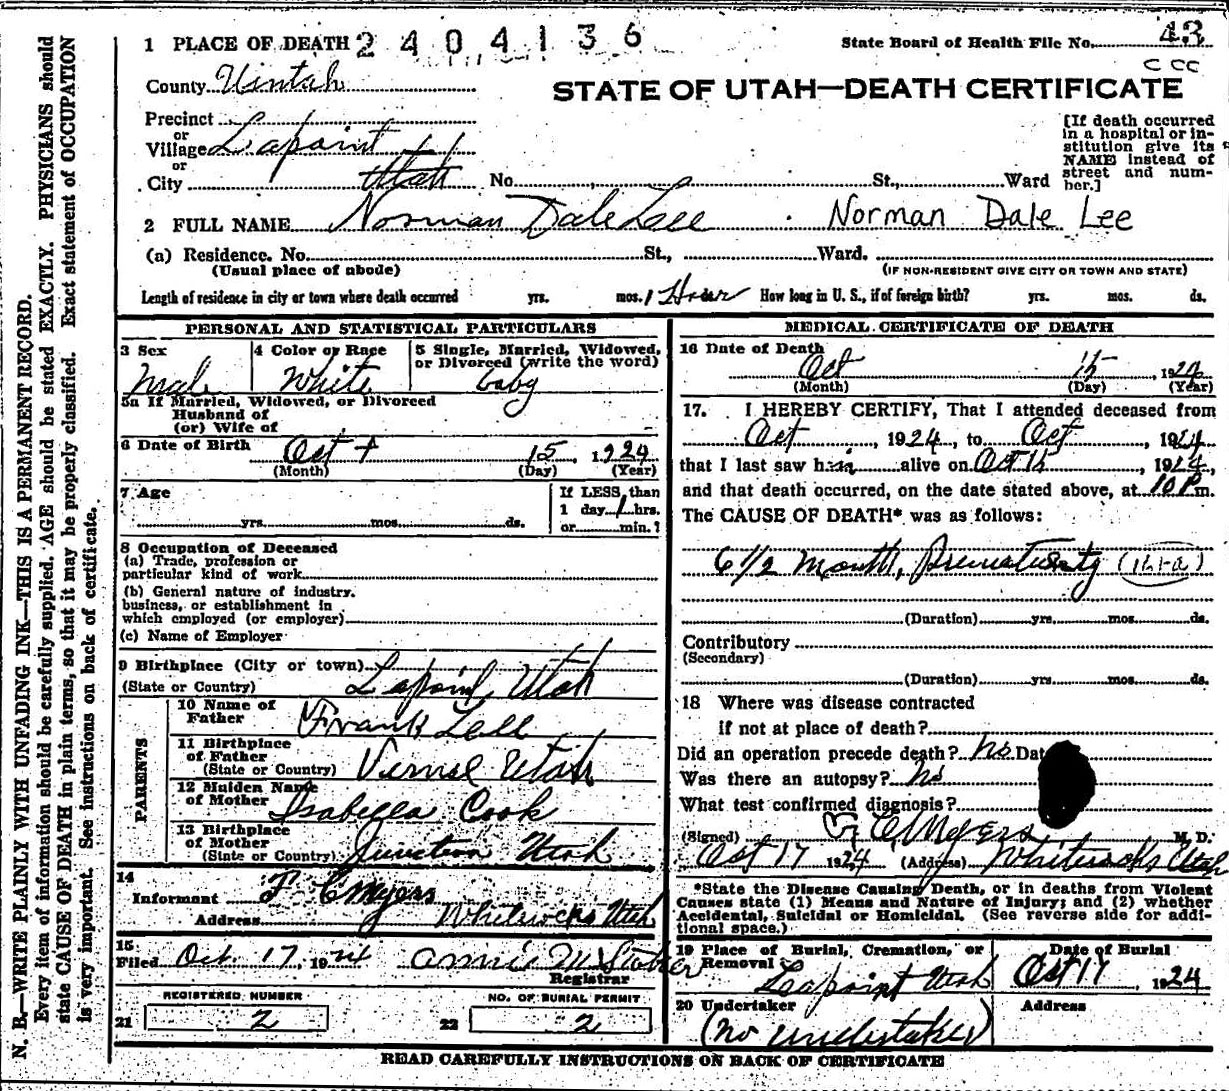 N. B.—WRITE PLAINLY WITH UNFADING INK—THIS IS A PERMANENT RECORD.
Every item of information should be carefully supplied. AGE should be stated EXACTLY. PHYSICIANS should
state CAUSE OF DEATH in plain terms, so that it may be properly classified. Exact statement of OCCUPATION
is very important. See instructions on back of certificate.
1 PLACE OF DEATH 2404136
State Board of Health File No. 43
C CC
County Uintah
STATE OF UTAH—DEATH CERTIFICATE
Precinct
or
Village Lapoint
or
City Utah No. St., Ward
[If death occurred
in a hospital or in-
stitution give its
NAME instead of
street and num-
ber.]
2 FULL NAME Norman Dale Lee Norman Dale Lee
(a) Residence. No. St., Ward.
(Usual place of abode) (IF NON-RESIDENT GIVE CITY OR TOWN AND STATE)
Length of residence in city or town where death occurred yrs. mos. 1 Hour How long in U. S., if of foreign birth? yrs. mos. ds.
PERSONAL AND STATISTICAL PARTICULARS
3 Sex
Male
4 Color or Race
White
5 Single, Married, Widowed,
or Divorced (write the word)
baby
5a If Married, Widowed, or Divorced
Husband of
(or) Wife of
6 Date of Birth Oct 15, 1924
(Month) (Day) (Year)
7 Age
yrs. mos. ds.
If LESS than
1 day 1 hrs.
or min.?
8 Occupation of Deceased
(a) Trade, profession or
particular kind of work
(b) General nature of industry,
business, or establishment in
which employed (or employer)
(c) Name of Employer
9 Birthplace (City or town)
(State or Country) Lapoint, Utah
PARENTS
10 Name of
Father Frank Lee
11 Birthplace
of Father
(State or Country) Vernal Utah
12 Maiden Name
of Mother Isabella Cook
13 Birthplace
of Mother
(State or Country) Junction Utah
14
Informant F C Myers
Address Whiterocks Utah
15
Filed Oct. 17, 1924 Annie M
Registrar
REGISTERED NUMBER
21 2
NO. OF BURIAL PERMIT
22 2
MEDICAL CERTIFICATE OF DEATH
16 Date of Death
Oct 15, 1924
(Month) (Day) (Year)
17. I HEREBY CERTIFY, That I attended deceased from
Oct, 1924, to Oct, 1924
that I last saw him alive on Oct 15, 1924,
and that death occurred, on the date stated above, at 10 P m.
The CAUSE OF DEATH* was as follows:
6 1/2 Month, Prematurity
(Duration) yrs. mos. ds.
Contributory
(Secondary)
(Duration) yrs. mos. ds.
18 Where was disease contracted
if not at place of death?
Did an operation precede death? No Dat
Was there an autopsy? No
What test confirmed diagnosis?
(Signed) C Myers M. D.
Oct 17 1924 (Address) Whiterocks Utah
*State the Disease Causing Death, or in deaths from Violent
Causes state (1) Means and Nature of Injury; and (2) whether
Accidental, Suicidal or Homicidal. (See reverse side for addi-
tional space.)
19 Place of Burial, Cremation, or
Removal
Lapoint Utah
Date of Burial
Oct 17, 1924
20 Undertaker Address
(No undertaker)
READ CAREFULLY INSTRUCTIONS ON BACK OF CERTIFICATE